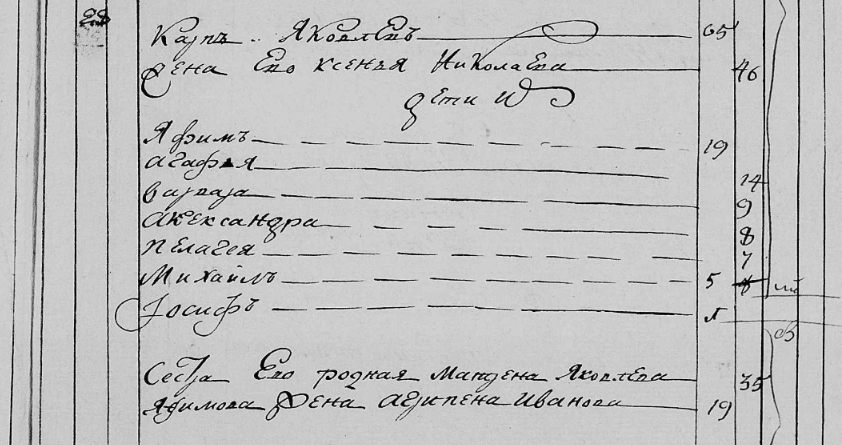 28
Карпъ Яковлевъ 65
Жена Ево Ксенья Николаева 46
Дети Их
Яфимъ 19
Агафья 14
Варвара 9
Александра 8
Пелагея 7
Михайлъ 5
Иосифъ 1
Сестра Ево родная Магдена Яковлева 35
Яфимова Жена Агрипена Иванова 19